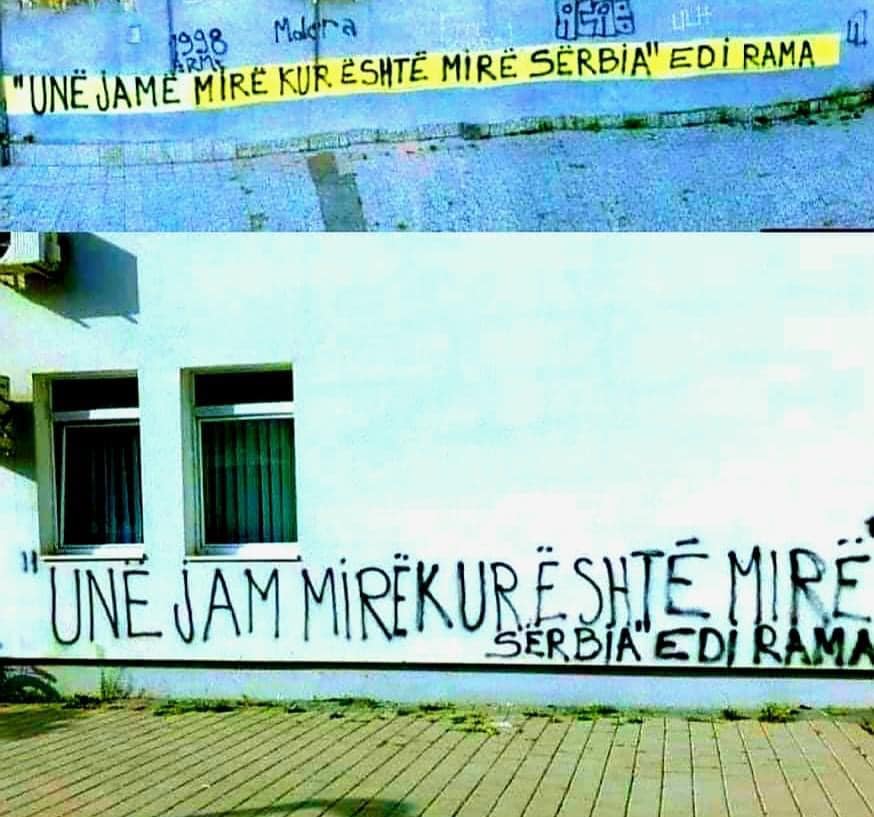 1998
ARMY
Malora
ULH
"UNË JAMË MIRË KUR ËSHTË MIRË SËRBIA" EDI RAMA
"UNË JAM MIRËKUR ËSHTË MIRË
SËRBIA" EDI RAMA